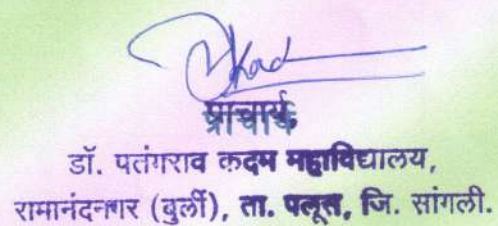 प्राचार्य,
डॉ. पतंगराव कदम महाविद्यालय,
रामानंदनगर (बुर्ली), ता. पलूस, जि. सांगली.